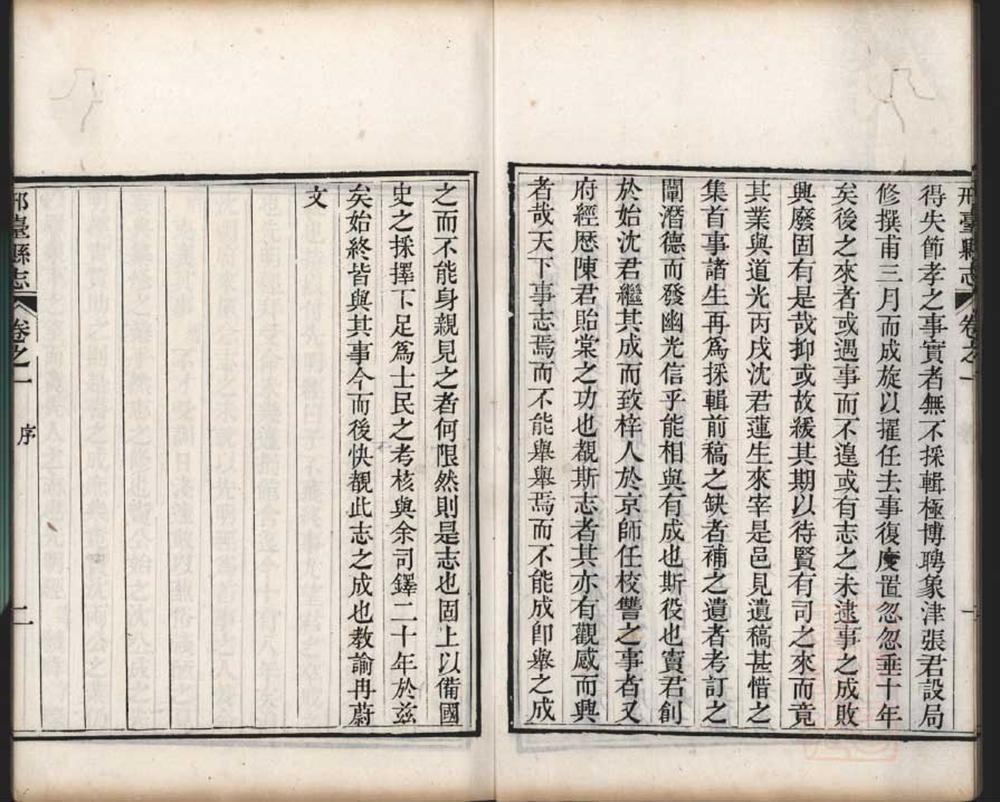 邢臺縣志 卷之一 一
得失節孝之事實者無不採輯極博聘象津張君設局
修撰甫三月而成旋以擢任去事復度置忽忽垂十年
矣後之來者或遇事而不遑或有志之未逮事之成敗
興廢固有是哉抑或故緩其期以待賢有司之來而竟
其業與道光丙戌沈君蓮生來宰是邑見遺稿甚惜之
集首事諸生再爲採輯前稿之缺者補之遺者考訂之
闡潛德而發幽光信乎能相與有成也斯役也寳君創
於始沈君繼其成而致梓人於京師任校讐之事者又
府經歷陳君貽棠之功也觀斯志者其亦有觀感而興
者哉天下事志焉而不能舉舉焉而不能成卽舉之成
之而不能身親見之者何限然則是志也固上以備國
史之採擇下足爲士民之考核與余司鐸二十年於兹
矣始終皆與其事今而後快覩此志之成也教諭冉蔚
文
邢臺縣志 卷之一 序 二